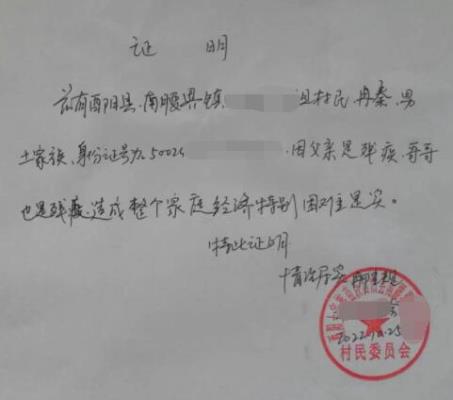 证 明
兹有酉阳县、南腰界镇、 组村民、冉秦、男
土家族、身份证号为5002 、因父亲是残疾、哥哥
也是残疾、造成整个家庭经济特别困难是实。
特此证明
情况属实
2022
25
村民委员会